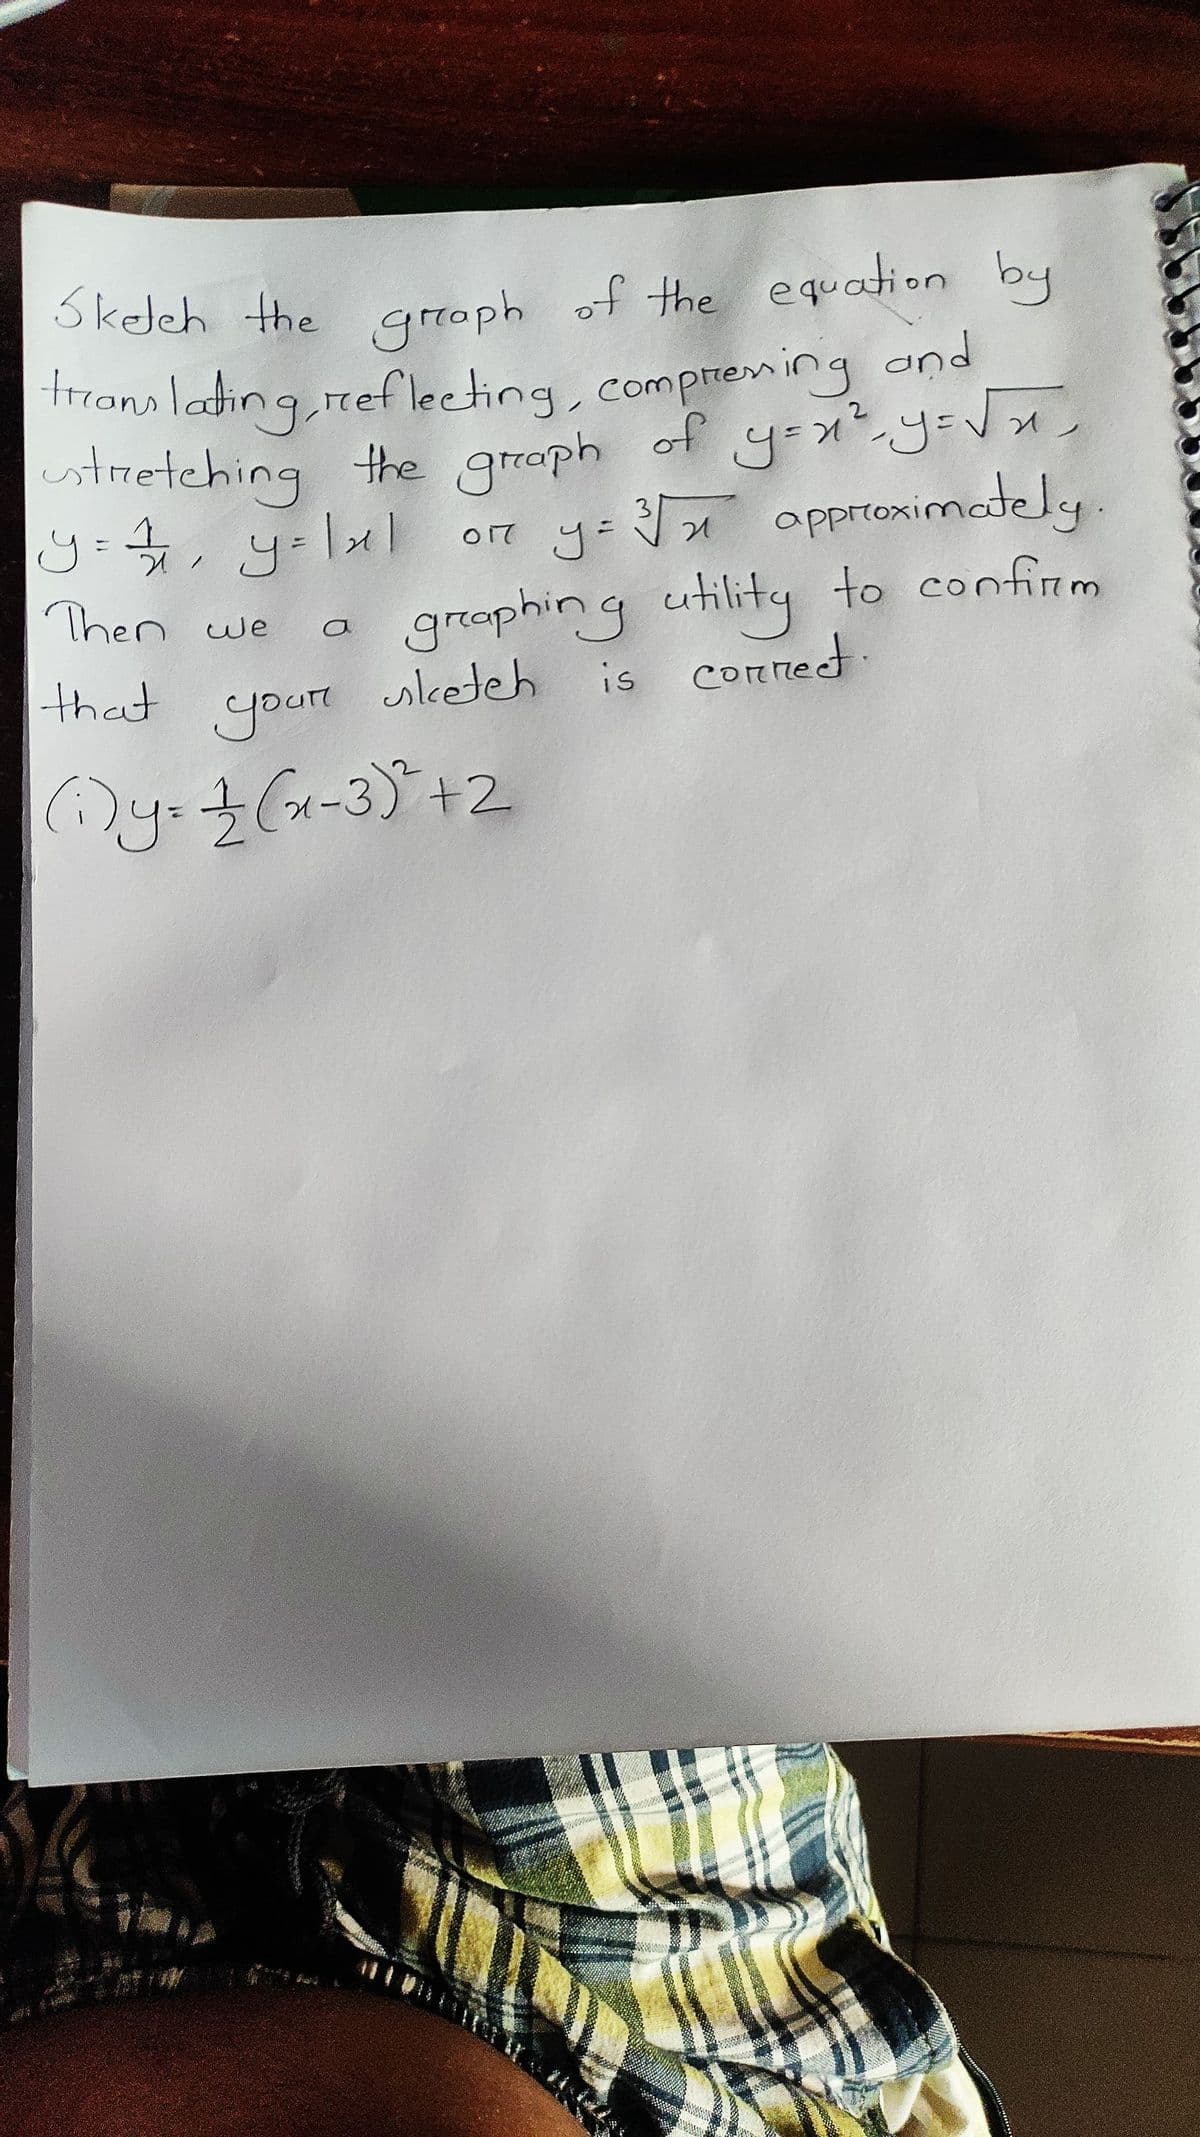 Sketch the graph of the equation by
translating, reflecting, compressing and
stretching the graph of y=x², y=√x,
y=1/x, y=|x| or y=∛x approximately.
Then we a graphing utility to confirm
that your sketch is correct.
(i) y=1/2(x-3)²+2